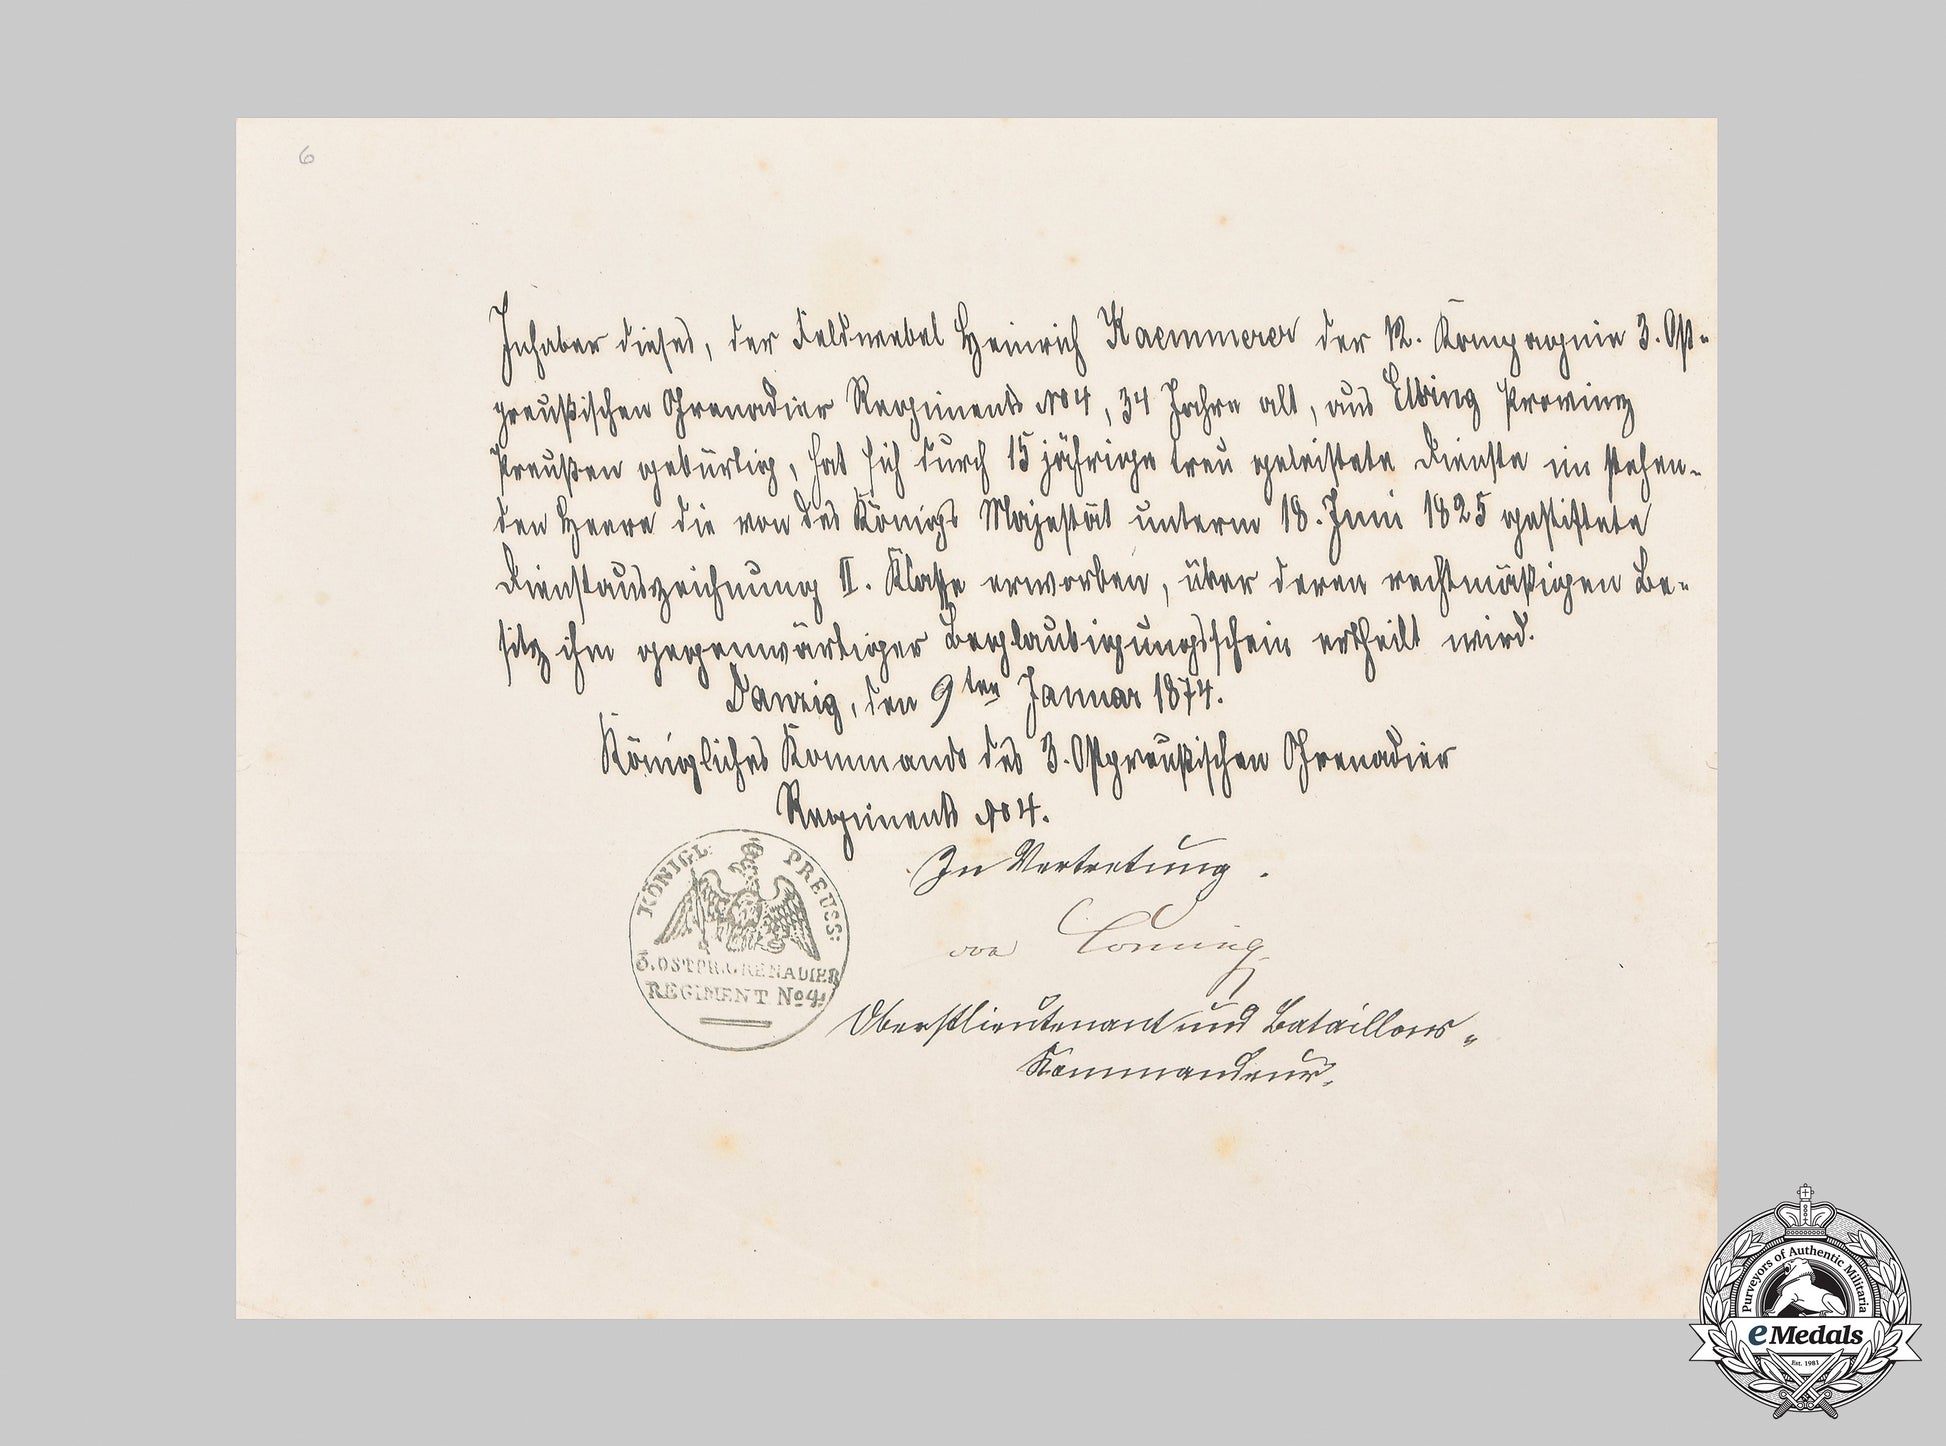 6
Inhaber dieses, der Feldwebel Heinrich Kaemmerer der 12. Kompagnie 3. Ost-
preußischen Grenadier Regiments No 4, 34 Jahre alt, aus Elbing Provinz
Preußen gebürtig, hat sich durch 15 jährige treu geleistete Dienste im stehen-
den Heere die von des Königs Majestät unterm 18. Juni 1825 gestiftete
Dienstauszeichnung II. Klasse erworben, über deren rechtmäßigen Be-
sitz ihm gegenwärtiger Beglaubigungsschein ertheilt wird.
Danzig, den 9ten Januar 1874.
Königliches Kommando des 3. Ostpreußischen Grenadier
Regiments No 4.
In Vertretung.
von
Oberstlieutenant und Bataillons-
Kommandeur.
KÖNIGL: PREUSS:
3. OSTPR. GRENADIER
REGIMENT No 4.
Purveyors of Authentic Militaria
eMedals
Est. 1983